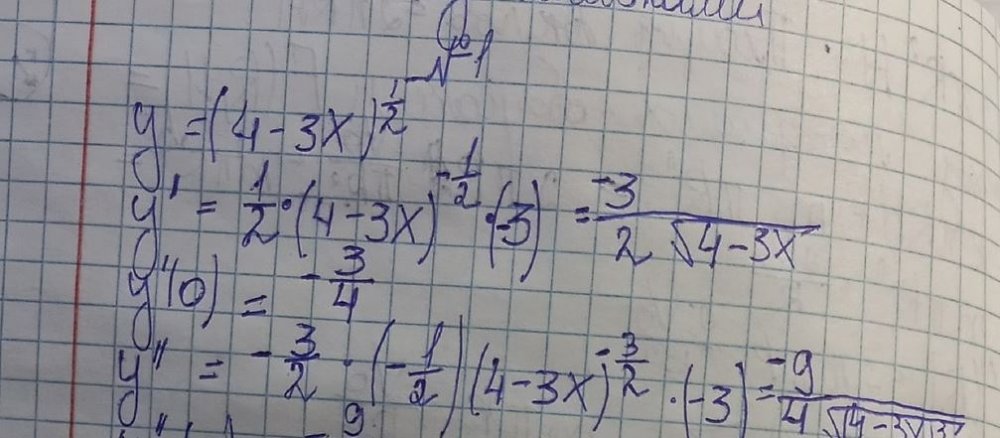 №1
y = (4 - 3x)^{1/2}
y' = 1/2 · (4 - 3x)^{-1/2} · (-3) = -3/(2√(4-3x))
y'(0) = -3/4
y'' = -3/2 · (-1/2)(4 - 3x)^{-3/2} · (-3) = -9/(4√(4-3x)^3)
9